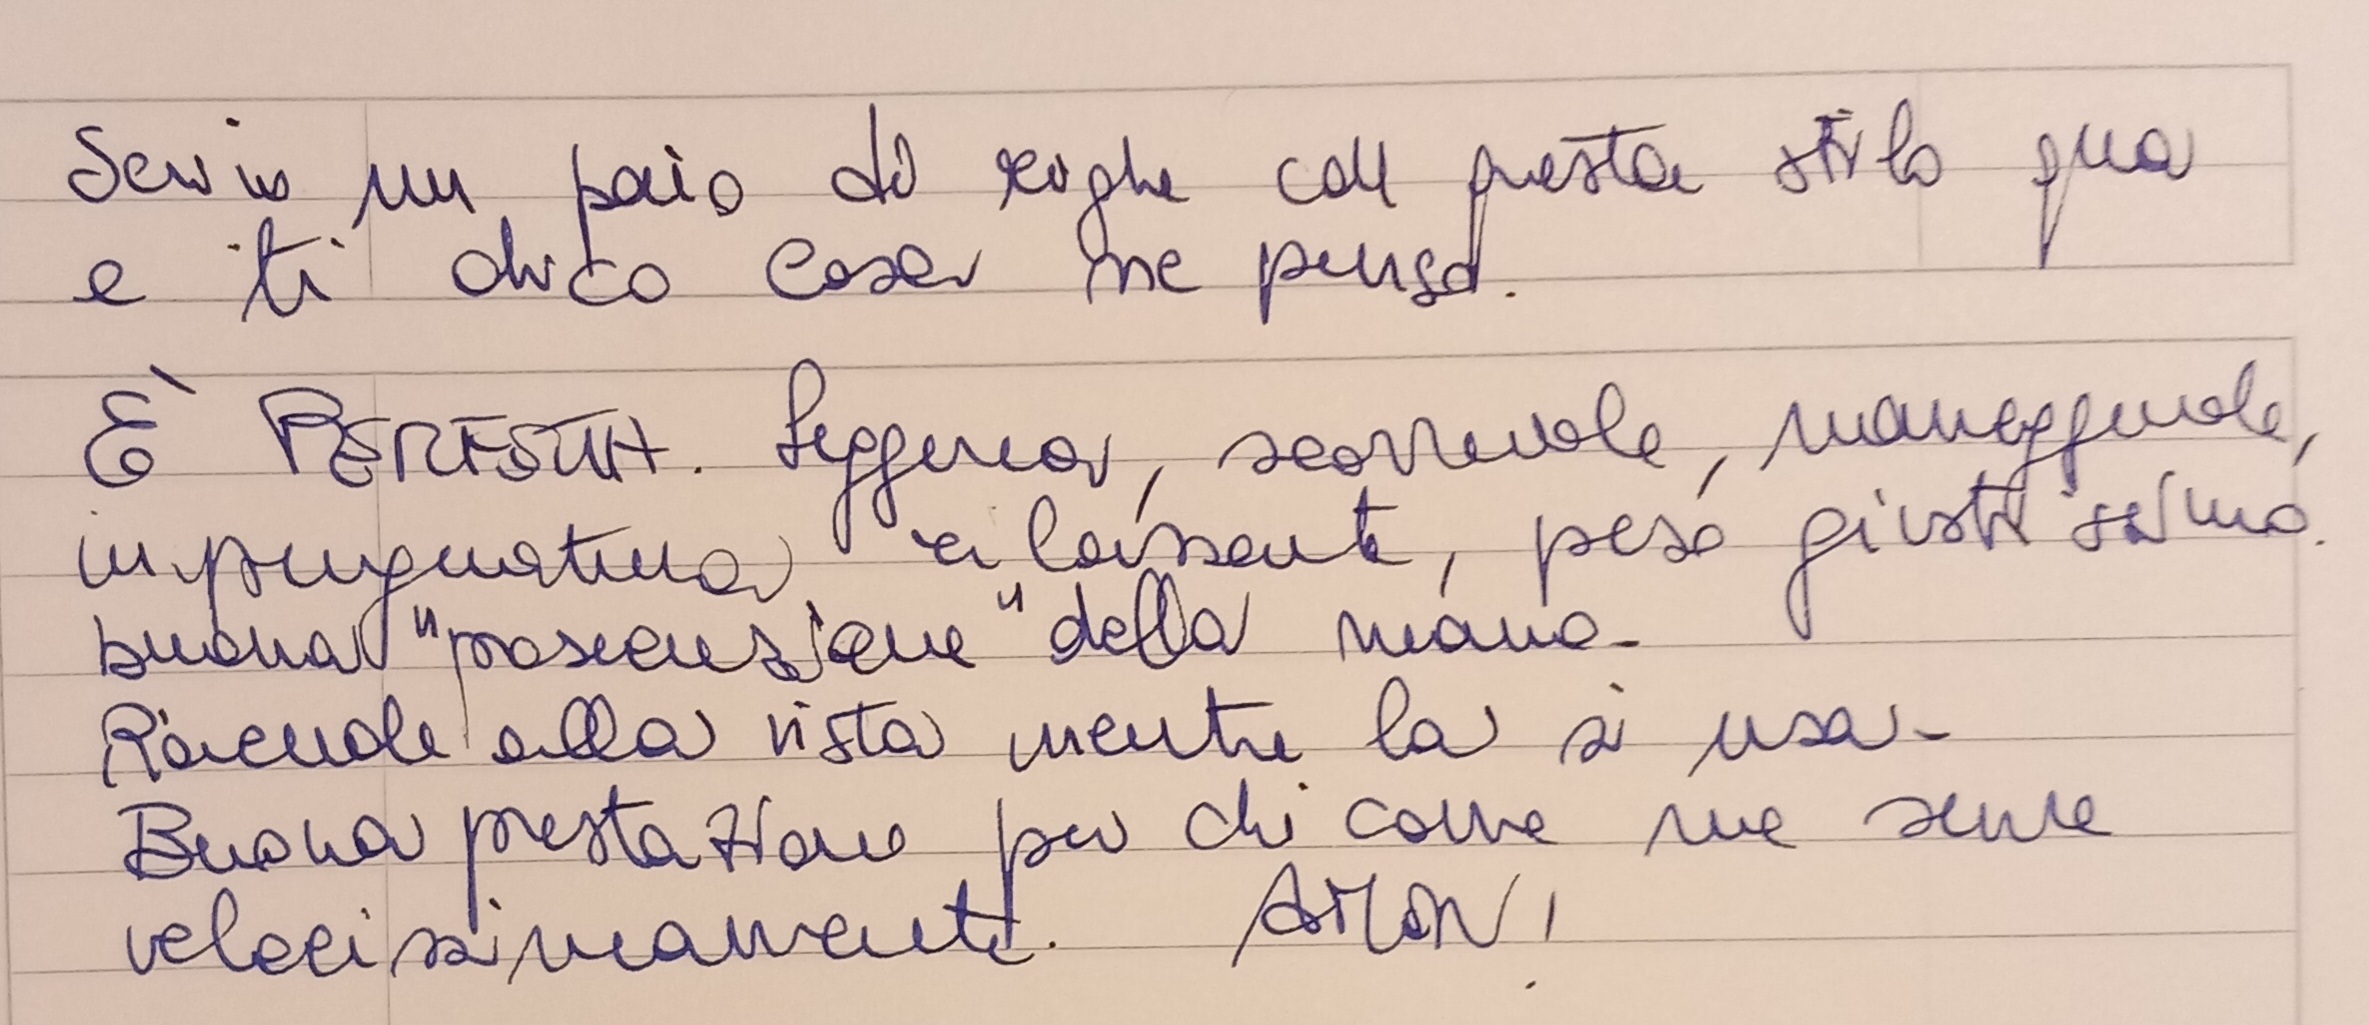 Scrivo un paio di righe con questa stilo qua
e ti dico cosa ne penso.
È PERFETTA. Leggera, scorrevole, maneggevole,
impugnatura rilassante, peso giustissimo.
buona "prosecuzione" della mano.
Piacevole alla vista mentre la si usa.
Buona prestazione per chi come me scrive
velocissimamente.